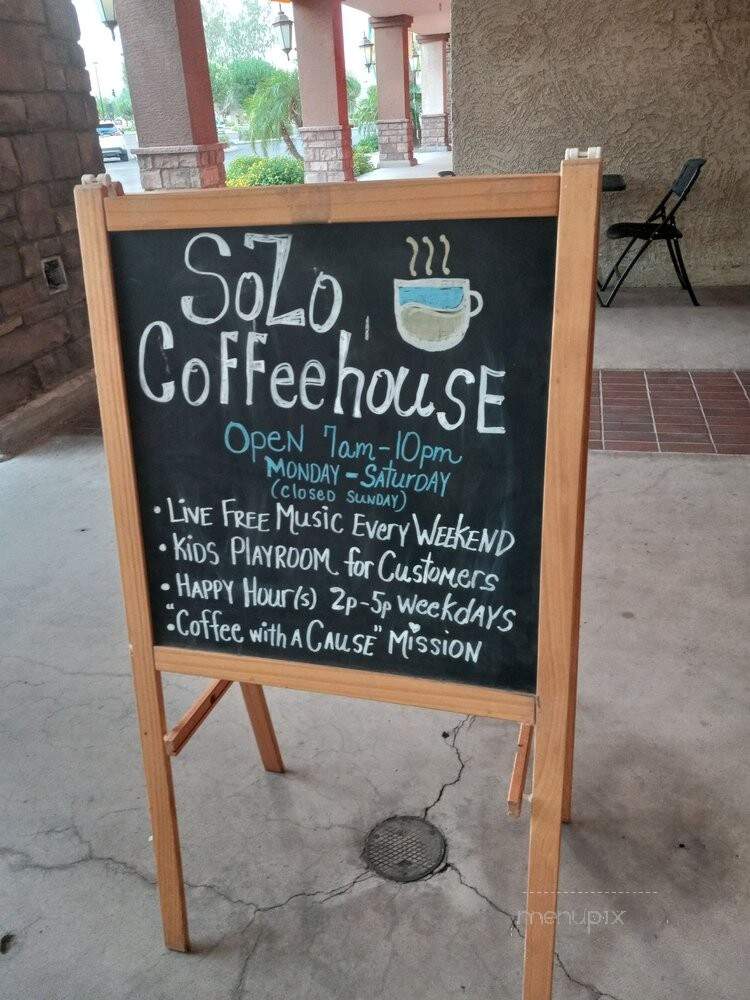 SoZo
CoffeehousE
OPEN 7am-10pm
MONDAY-SATURDAY
(CLOSED SUNDAY)
• LIVE FREE MUSIC EVERY WEEKEND
• KIDS PLAYROOM for CUSTOMERS
• HAPPY HOUR(S) 2p-5p WEEKDAYS
• "Coffee with A CAUSE" MISSION
menupix